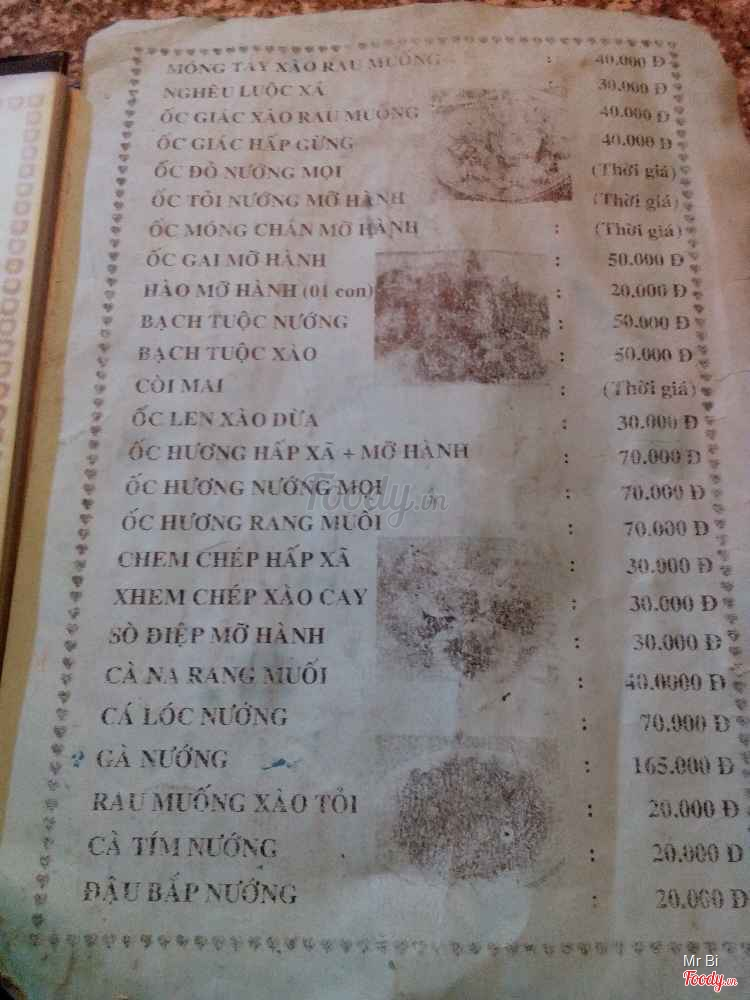 MÓNG TAY XÀO RAU MUỐNG : 40.000 Đ
NGHÊU LUỘC XẢ : 30.000 Đ
ỐC GIÁC XÀO RAU MUỐNG 40.000 Đ
ỐC GIÁC HẤP GỪNG 40.000 Đ
ỐC ĐỎ NƯỚNG MỌI (Thời giá)
ỐC TỎI NƯỚNG MỠ HÀNH (Thời giá)
ỐC MÓNG CHÂN MỠ HÀNH : (Thời giá)
ỐC GAI MỠ HÀNH : 50.000 Đ
HÀO MỠ HÀNH (01 con) : 20.000 Đ
BẠCH TUỘC NƯỚNG : 50.000 Đ
BẠCH TUỘC XÀO : 50.000 Đ
CÒI MAI : (Thời giá)
ỐC LEN XÀO DỪA : 30.000 Đ
ỐC HƯƠNG HẤP XÃ + MỠ HÀNH : 70.000 Đ
ỐC HƯƠNG NƯỚNG MỌI : 70.000 Đ
ỐC HƯƠNG RANG MUỐI : 70.000 Đ
CHEM CHÉP HẤP XÃ : 30.000 Đ
XHEM CHÉP XÀO CAY : 30.000 Đ
SÒ ĐIỆP MỠ HÀNH : 30.000 Đ
CÀ NA RANG MUỐI : 40.0000 Đ
CÁ LÓC NƯỚNG : 70.000 Đ
? GÀ NƯỚNG : 165.000 Đ
RAU MUỐNG XÀO TỎI : 20.000 Đ
CÀ TÍM NƯỚNG : 20.000 Đ
ĐẬU BẮP NƯỚNG : 20.000 Đ
Foody.vn
Mr Bi
Foody.vn